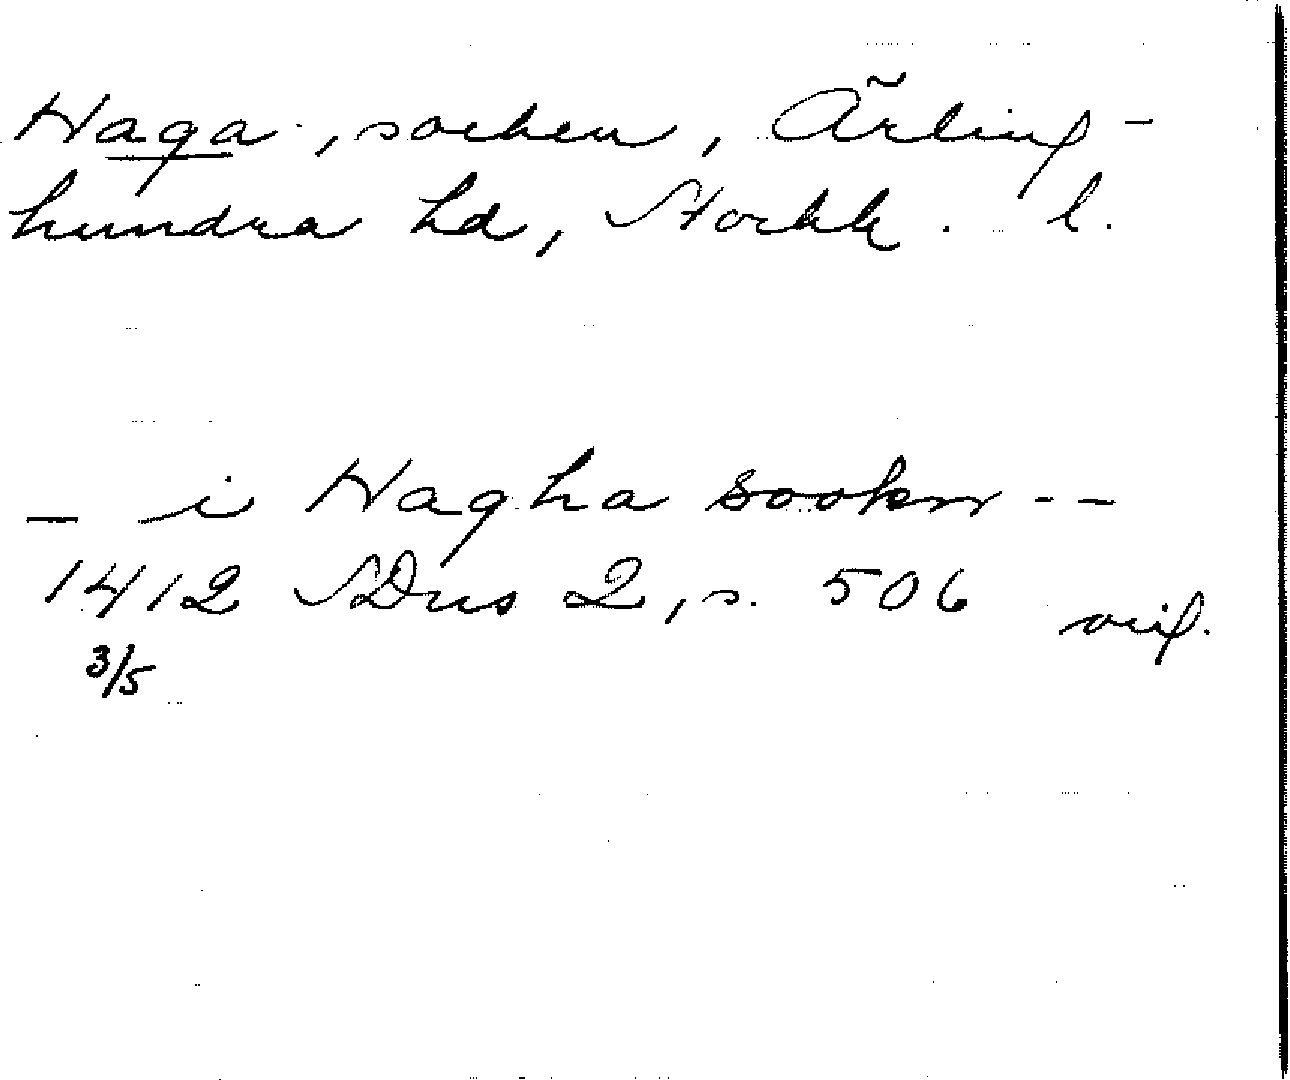 Haga, socken, Ärling-
hundra hd, Stockh. l.
_ i Hagha sookn --
1412 SDns 2, s. 506 orig.
3/5